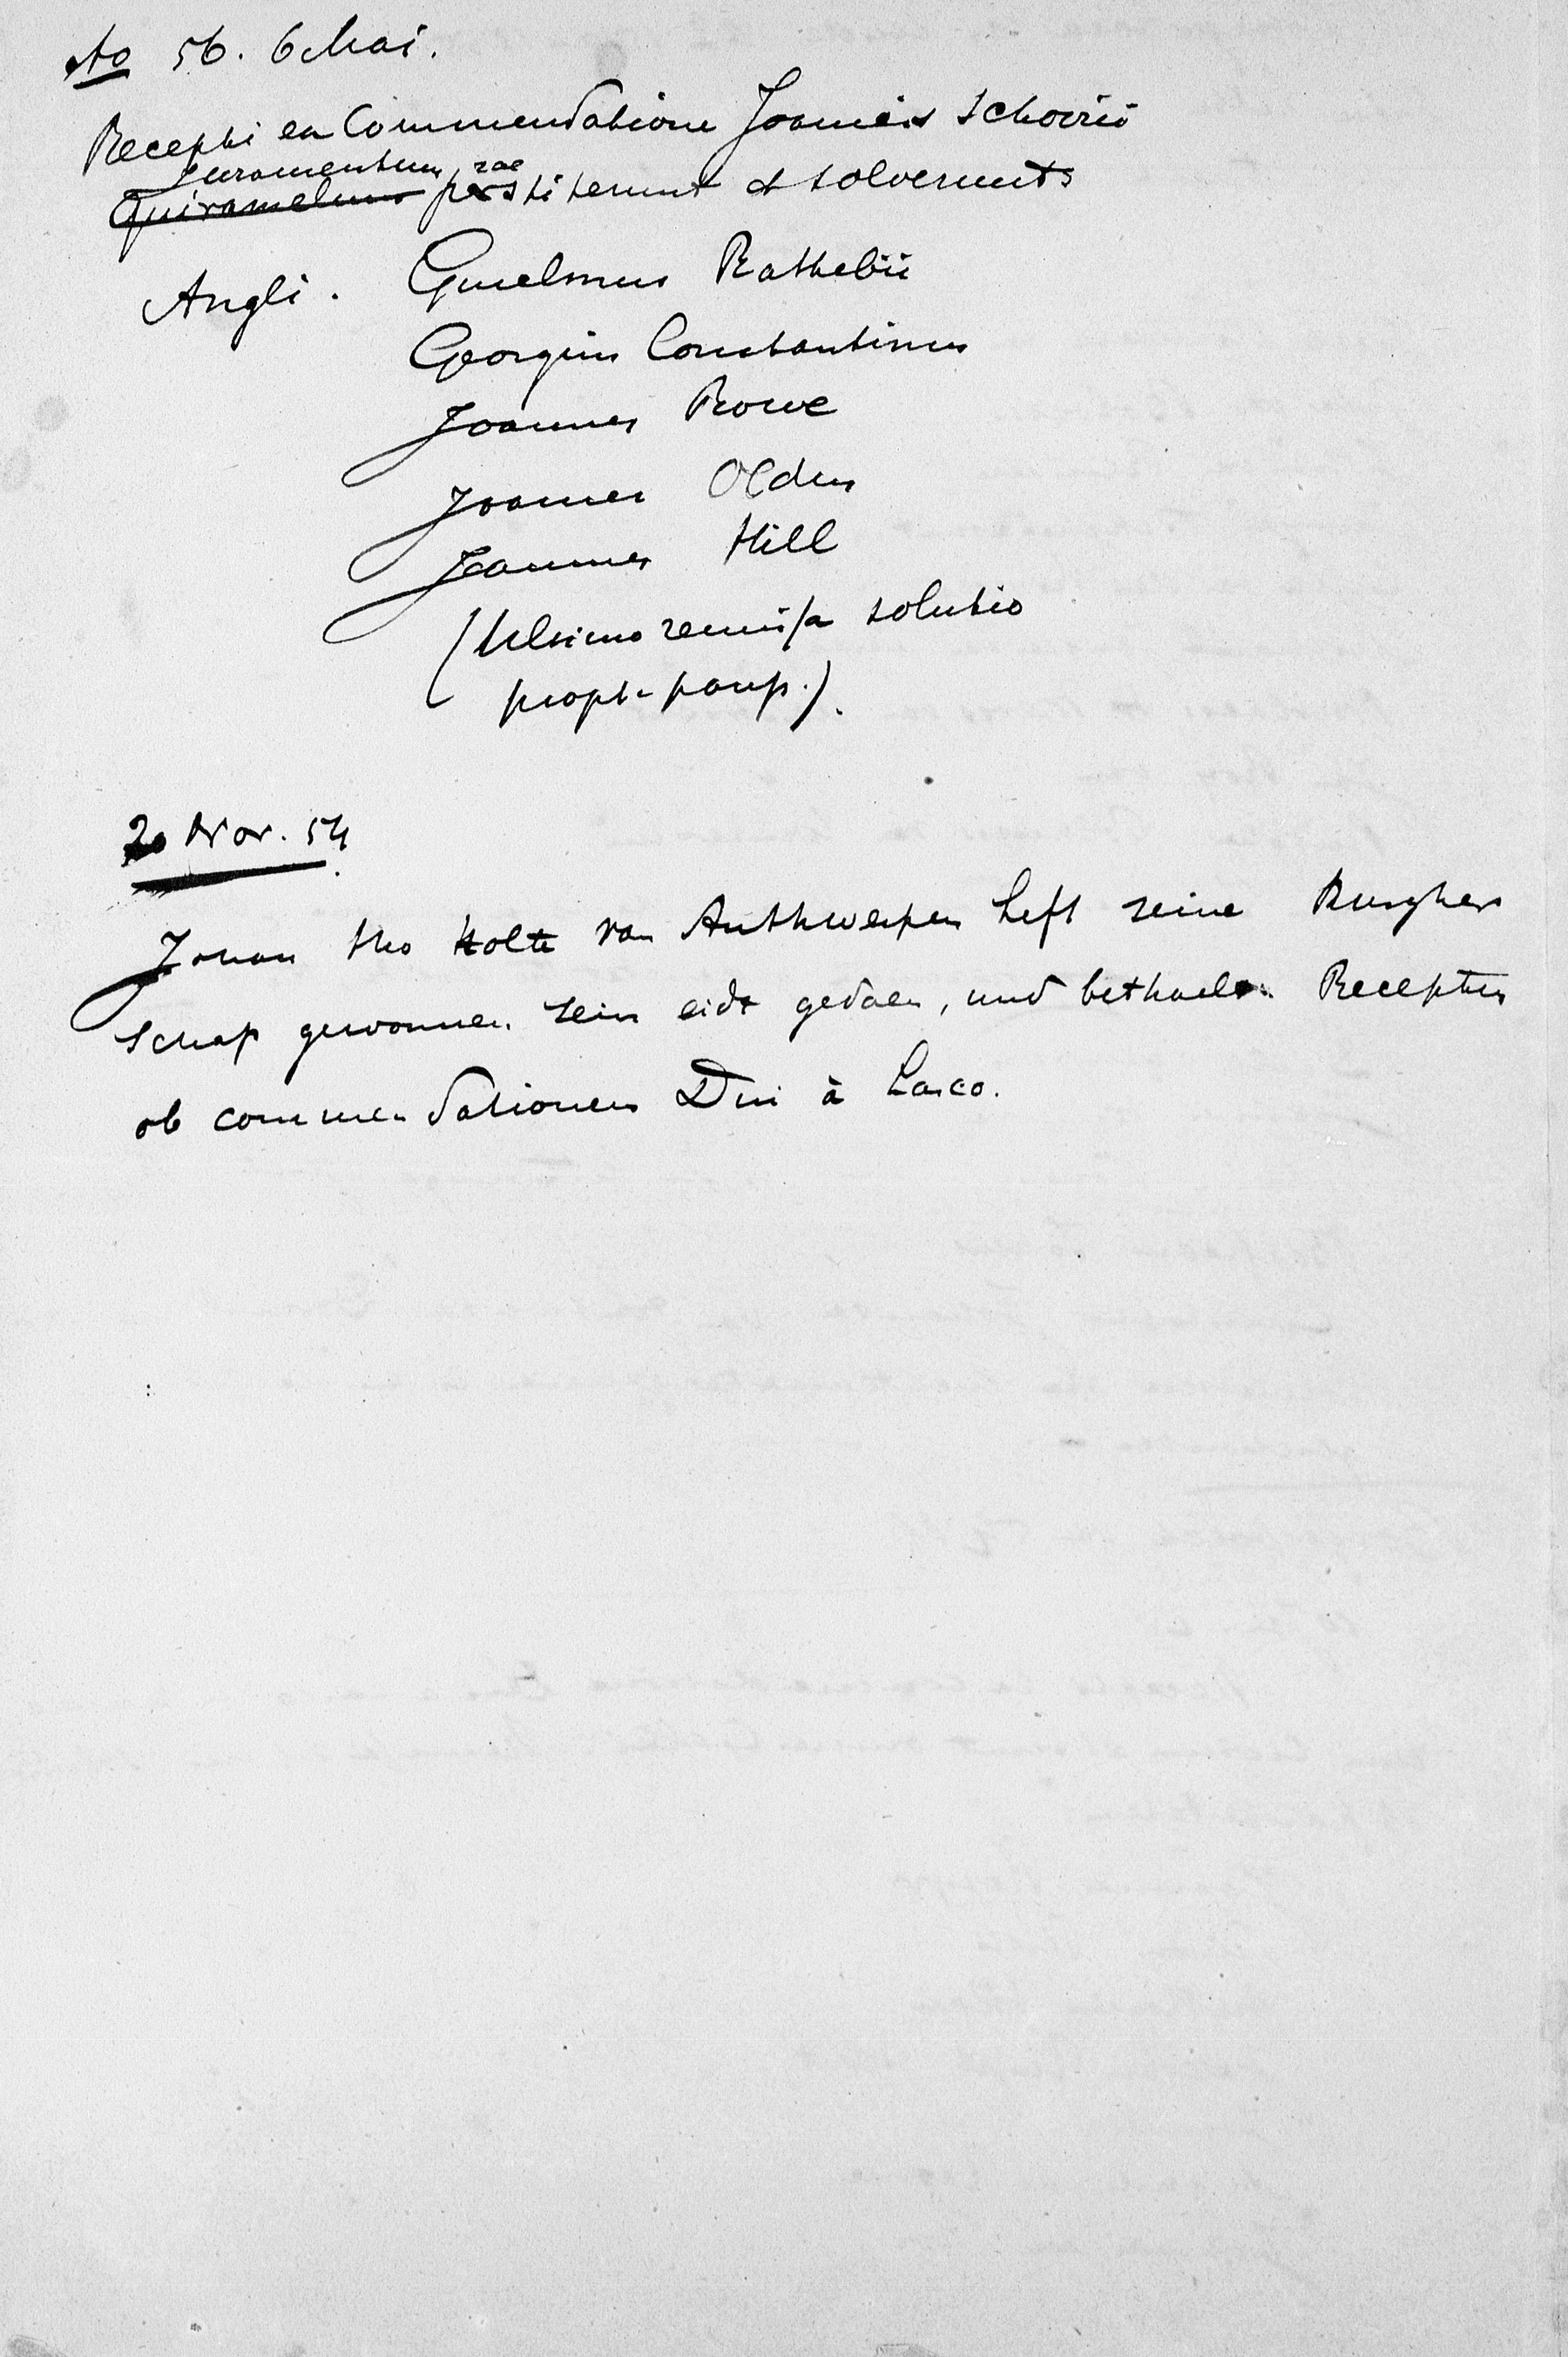 Ao 56. 6 Mai.
Recepti ex Commendatione Joannis Schorii
Juramentum rae
Quiramelum perstiterunt et solverunt
Angli. Guielmus Rathebii
Georgius Constantinus
Joannes Rowe
Joannes Olden
Joannes Hill
(Ultimo remissa solutio
propt. paup.).
20 Nov. 54.
Johan tho Holte van Anthwerpen heft seine Burgher
schap gewonnen. sein eidt gedaen, und bethaelt. Receptus
ob commendationem Dni à Lasco.